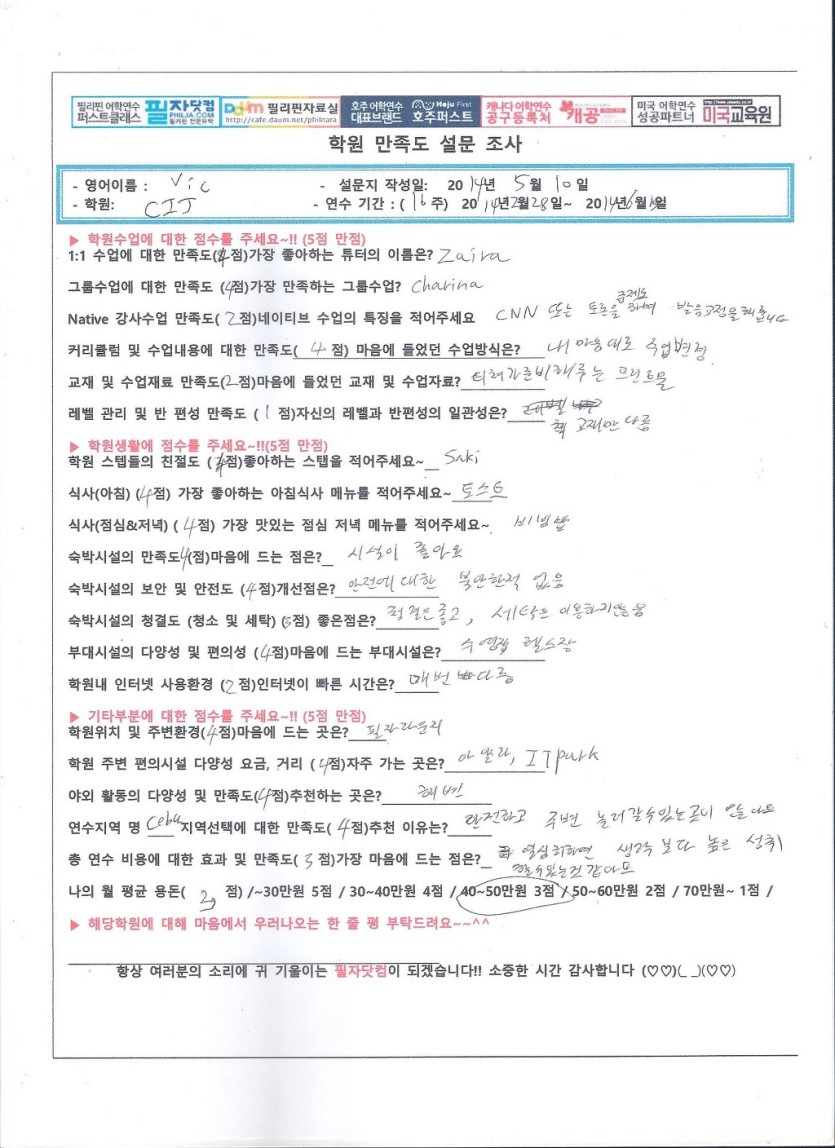 필리핀 어학연수 퍼스트클래스 필자닷컴 PHILJA.COM Daum 필리핀자료실 http://cafe.daum.net/philnara 호주 어학연수 대표브랜드 Hoju First 호주퍼스트 캐나다 어학연수 공구등록처 캐공 미국 어학연수 성공파트너 미국교육원
학원 만족도 설문 조사
- 영어이름 : Vic - 설문지 작성일: 2014년 5월 10일
- 학원: CIJ - 연수 기간 : (16주) 2014년2월28일~ 2014년6월일
▶ 학원수업에 대한 점수를 주세요~!! (5점 만점)
1:1 수업에 대한 만족도(4점)가장 좋아하는 튜터의 이름은? Zaira
그룹수업에 대한 만족도 (4점)가장 만족하는 그룹수업? Charina
Native 강사수업 만족도(2점)네이티브 수업의 특징을 적어주세요 CNN 또는 토론을 하며 발음교정을 해줍니다
커리큘럼 및 수업내용에 대한 만족도( 4 점) 마음에 들었던 수업방식은? 내 마음대로 수업변경
교재 및 수업재료 만족도(2점)마음에 들었던 교재 및 수업자료? 티쳐가 준비해주는 프린트물
레벨 관리 및 반 편성 만족도 ( 1 점)자신의 레벨과 반편성의 일관성은? 책 교재만 다름
▶ 학원생활에 점수를 주세요~!!(5점 만점)
학원 스텝들의 친절도 (4점)좋아하는 스탭을 적어주세요~ Saki
식사(아침) (4점) 가장 좋아하는 아침식사 메뉴를 적어주세요~ 토스트
식사(점심&저녁) ( 4점) 가장 맛있는 점심 저녁 메뉴를 적어주세요~ 비빔밥
숙박시설의 만족도4(점)마음에 드는 점은? 시설이 좋아요
숙박시설의 보안 및 안전도 (4점)개선점은? 안전에 대한 불안한적 없음
숙박시설의 청결도 (청소 및 세탁) (3점) 좋은점은? 청결은 좋고, 세탁은 이용하지않음
부대시설의 다양성 및 편의성 (4점)마음에 드는 부대시설은? 수영장 헬스장
학원내 인터넷 사용환경 (2점)인터넷이 빠른 시간은? 매번 다름
▶ 기타부분에 대한 점수를 주세요~!! (5점 만점)
학원위치 및 주변환경(4점)마음에 드는 곳은? 필자라운지
학원 주변 편의시설 다양성 요금, 거리 ( 4점)자주 가는 곳은? 아얄라, ITpark
야외 활동의 다양성 및 만족도(4점)추천하는 곳은? 해변
연수지역 명 Cebu 지역선택에 대한 만족도( 4점)추천 이유는? 안전하고 주변 놀러갈수있는곳이
총 연수 비용에 대한 효과 및 만족도( 3점)가장 마음에 드는 점은? 열심히하면 생각 보다 높은 성취
할수있는것 같아요
나의 월 평균 용돈( 3 점) /~30만원 5점 / 30~40만원 4점 / 40~50만원 3점 / 50~60만원 2점 / 70만원~ 1점 /
▶ 해당학원에 대해 마음에서 우러나오는 한 줄 평 부탁드려요~~^^
항상 여러분의 소리에 귀 기울이는 필자닷컴이 되겠습니다!! 소중한 시간 감사합니다 (♡♡)(_ _)(♡♡)